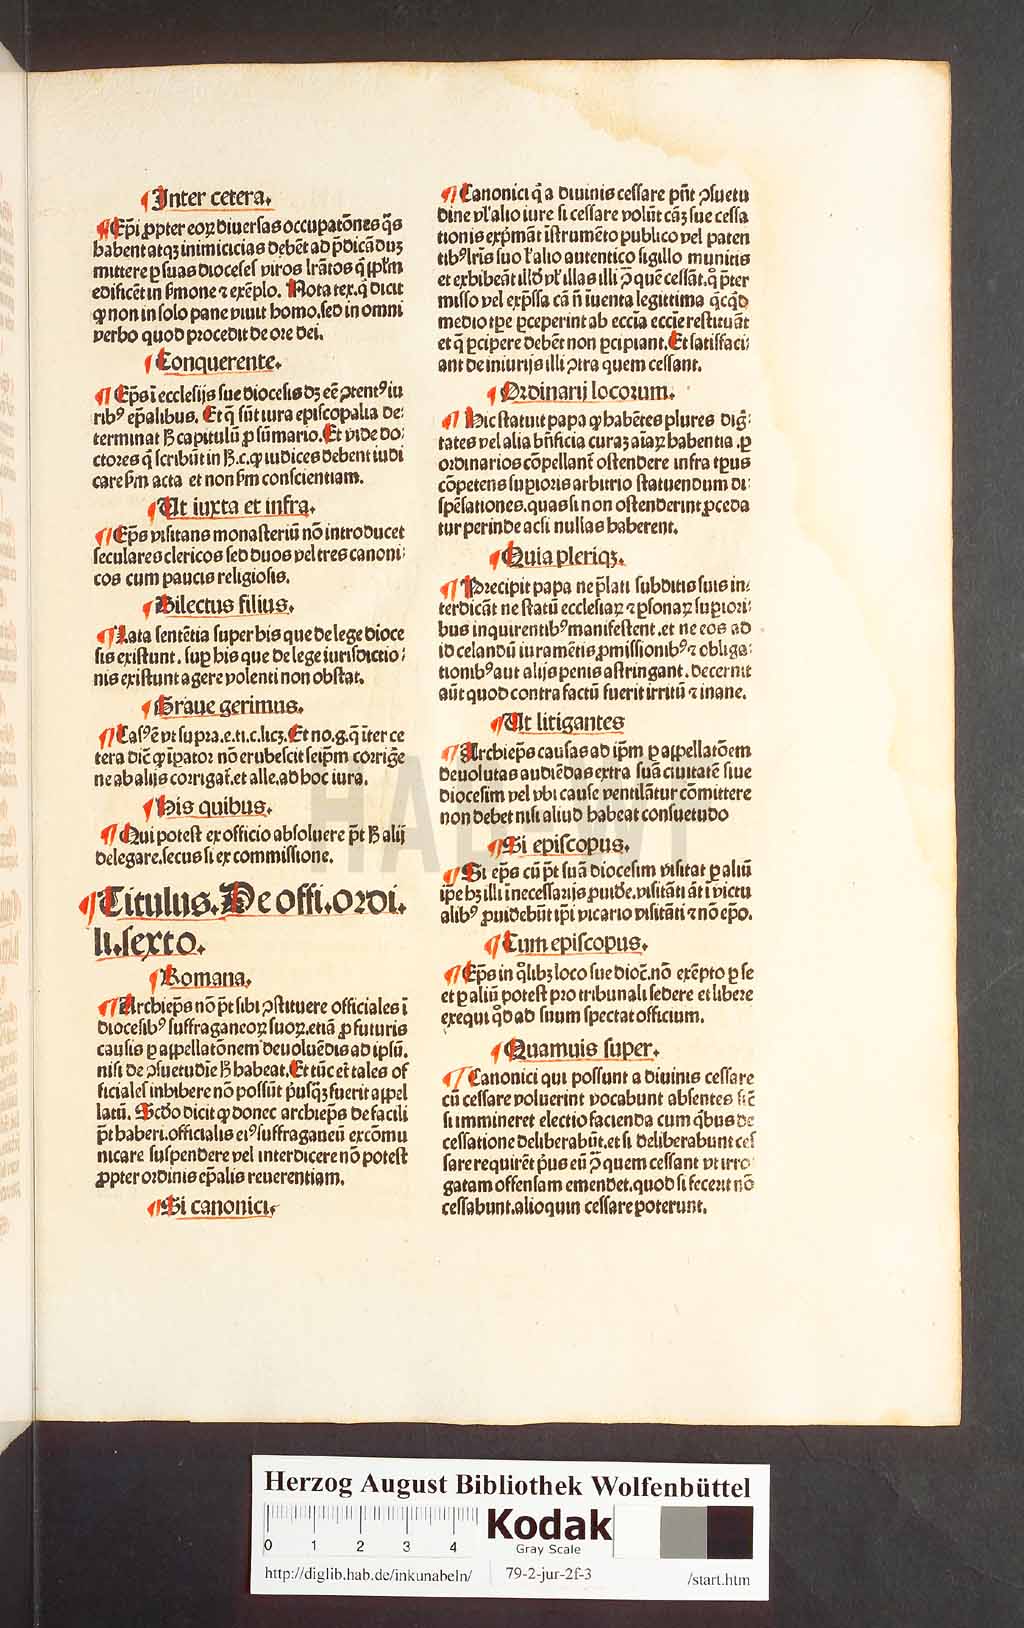 ¶Inter cetera.
¶Ep̄i ꝓpter eoꝝ diuersas occupatōnes q̄s
habent atqꝫ inimicicias debēt ad p̄dicādūꝫ
mittere ꝑ suas dioceses viros lr̄atos
edificēt in ẜmone ⁊ exēplo. Nota tex. q̄ dicit
ꝙ non in solo pane viuit homo. sed in omni
verbo quod procedit de ore dei.
¶Conquerente.
¶Ep̄s ī ecclesijs sue diocesis dꝫ eē ꝯtentꝰ iu
ribꝰ ep̄alibus. Et q̄ sūt iura episcopalia de:
terminat h̄ capitulū ꝓ sūmario. Et vide do:
ctores q̄ scribūt in h̄.c. ꝙ iudices debent iudi
care ẜm acta et non ẜm conscientiam.
¶Ut iuxta et infra.
¶Ep̄s visitans monasteriū nō introducet
seculares clericos sed duos vel tres canoni:
cos cum paucis religiosis.
¶Dilectus filius.
¶Lata sentētia super his que de lege dioce
sis existunt. suꝑ his que de lege iurisdictio:
nis existunt agere volenti non obstat.
¶Graue gerimus.
¶Casꝰ ē vt supra.e.ti.c.licꝫ. Et no.g. q̄ īter ce
tera dic̄ ꝙ īpator nō erubescit seip̄m corrige
ne ab alijs corrigat᷑. et alle. ad hoc iura.
¶His quibus.
¶Qui potest ex officio absoluere p̄t h̄ alij
delegare. secus si ex commissione.
¶Titulus. De offi. ordi.
li. sexto.
¶Romana.
¶Archiep̄s nō p̄t sibi ꝯstituere officiales ī
diocesibꝰ suffraganeoꝝ suoꝝ. etiā ꝓ futuris
causis ꝑ appellatōnem deuoluēdis ad ipsū.
nisi de ꝯsuetudīe h̄ habeat. Et tūc et̄ tales of
ficiales inhibere nō possūt p̄usqꝫ fuerit appel
latū. Scd̄o dicit ꝙ donec archiep̄s de facili
p̄t haberi. officialis eiꝰ suffraganeū excōmu
nicare suspendere vel interdicere nō potest
ꝓpter ordinis ep̄alis reuerentiam.
¶Si canonici.
¶Canonici q̄ a diuinis cessare pn̄t ꝯsuetu
dine vl̓ alio iure si cessare volūt cāꝫ sue cessa
tionis exp̄māt īstrumēto publico vel paten
tibꝰ lr̄is suo l̓ alio autentico sigillo munitis
et exhibeāt illd̓ vl̓ illas illi ꝯ que cessāt. ꝙ p̄ter
misso vel exp̄ssa cā n̄ iuenta legittima
medio tp̄e ꝑceperint ab eccīa eccīe restituāt
et q̄ ꝑcipere debēt non ꝑcipiant. Et satisfaci:
ant de iniurijs illi ꝯtra quem cessant.
¶Ordinarij locorum.
¶Hic statuit papa ꝙ habētes plures dig:
tates vel alia bn̄ficia curaꝫ aīaꝝ habentia. ꝑ
ordinarios cōpellant᷑ ostendere infra tp̄us
cōpetens suꝑioris arbitrio statuendum di:
spēsationes. quas si non ostenderint ꝓceda
tur perinde acsi nullas haberent.
¶Quia pleriqꝫ.
¶Precipit papa ne p̄lati subditis suis in:
terdicāt ne statū ecclesiaꝝ ⁊ ꝑsonaꝝ suꝑiori:
bus inquirentibꝰ manifestent. et ne eos ad
id celandū iuramētis ꝓmissionibꝰ ⁊ obliga:
tionibꝰ aut alijs penis astringant. decernit
aūt quod contra factū fuerit irritū ⁊ inane.
¶Ut litigantes
¶Archiep̄s causas ad ip̄m ꝑ appellatōem
deuolutas audiēdas extra suā ciuitatē siue
diocesim vel vbi cause ventilātur cōmittere
non debet nisi aliud habeat consuetudo
¶Si episcopus.
¶Si ep̄s cū p̄t suā diocesim visitat ꝑ aliū
ip̄e hꝫ illi ī necessarijs ꝓuidē. visitāti āt ī victu
alibꝰ ꝓuidebūt ip̄i vicario visitāti ⁊ nō ep̄o.
¶Cum episcopus.
¶Ep̄s in q̄libꝫ loco sue dioc̄. nō exēpto ꝑ se
et ꝑ aliū potest pro tribunali sedere et libere
exequi qd̓ ad suum spectat officium.
¶Quamuis super.
¶Canonici qui possunt a diuinis cessare
cū cessare voluerint vocabunt absentes sic̄
si immineret electio facienda cum q̄bus de
cessatione deliberabūt. et si deliberabunt ces
sare requirēt p̄us eū ꝯ quem cessant vt irro:
gatam offensam emendet. quod si fecerit nō
cessabunt. alioquin cessare poterunt.
HAB WF
Herzog August Bibliothek Wolfenbüttel
0 1 2 3 4
Kodak
Gray Scale
http://diglib.hab.de/inkunabeln/ 79-2-jur-2f-3 /start.htm